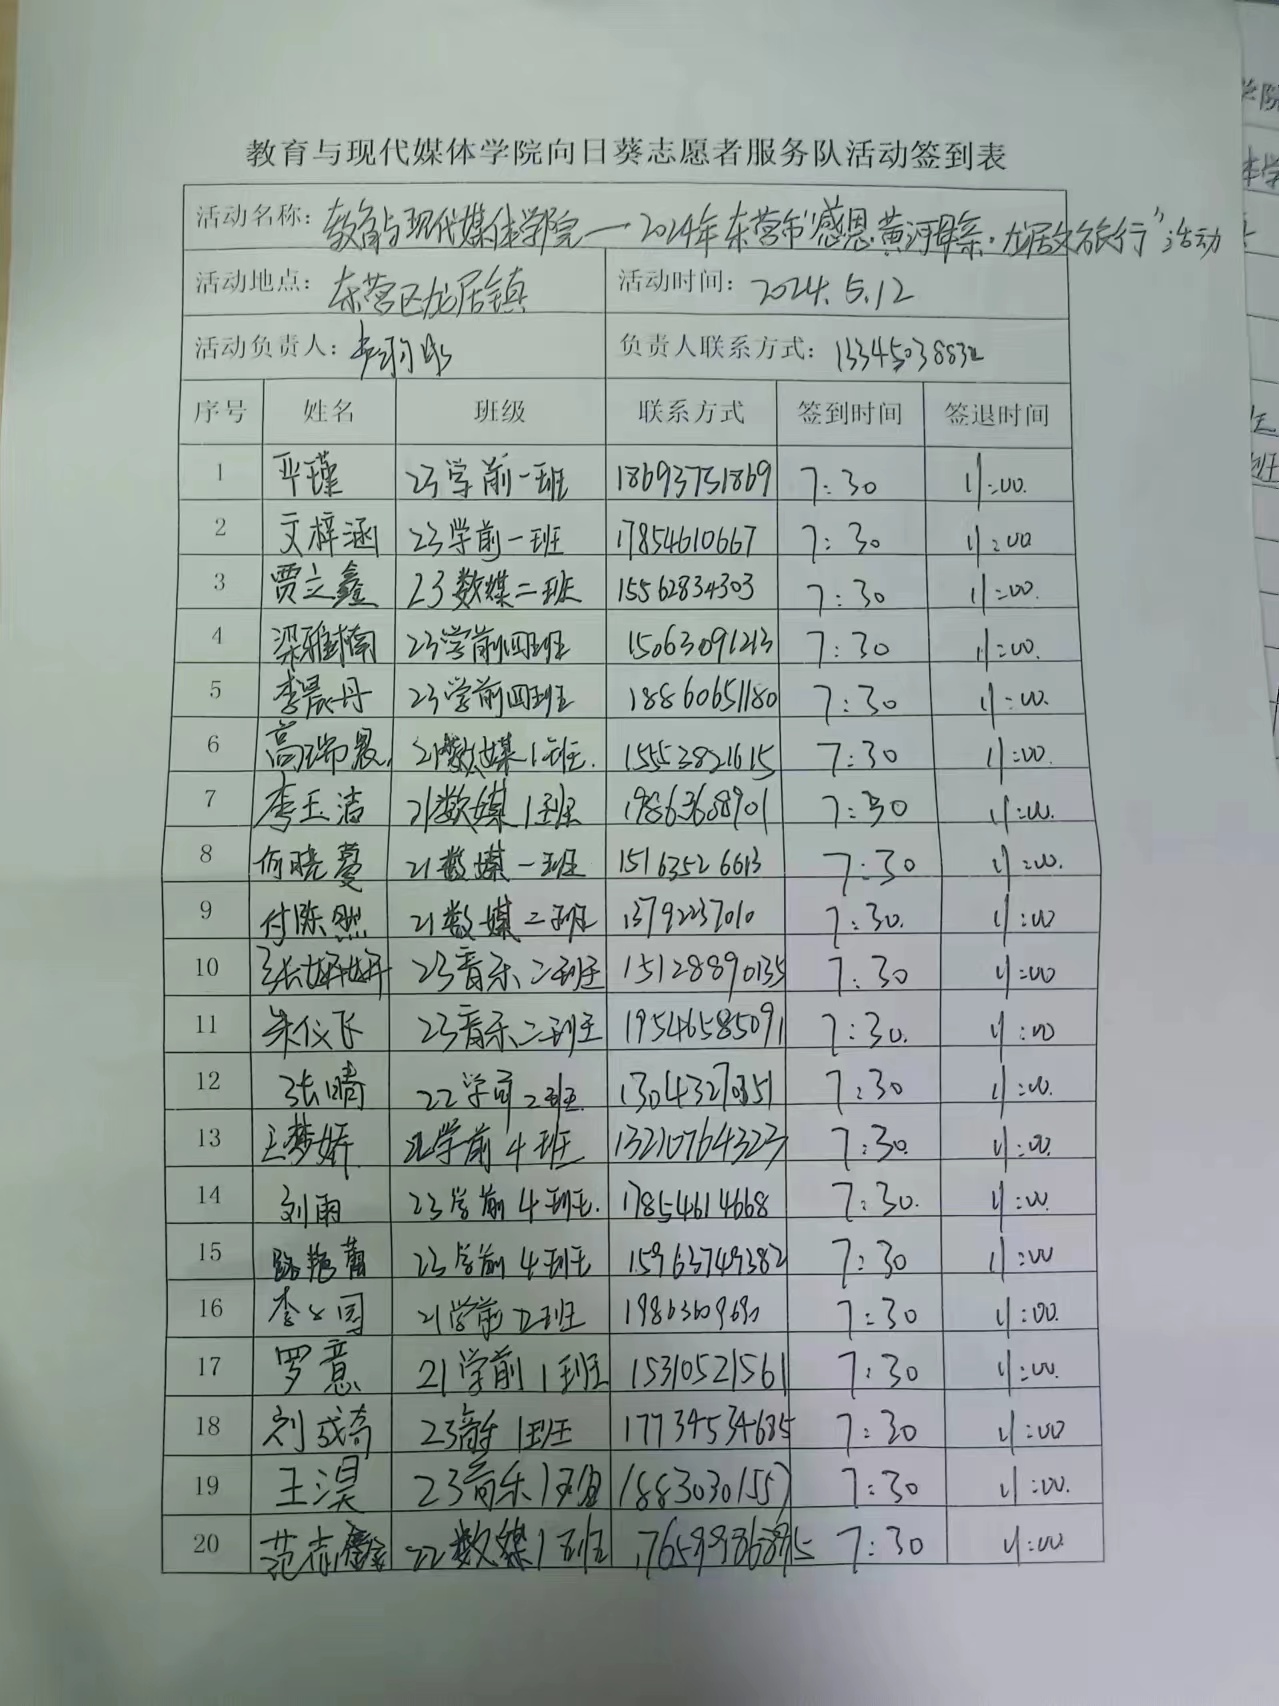 教育与现代媒体学院向日葵志愿者服务队活动签到表
活动名称：教育与现代媒体学院—2024年东营市"感恩黄河母亲·龙居文旅行"活动
活动地点：东营区龙居镇 活动时间：2024.5.12
活动负责人： 负责人联系方式：13345038832
序号 姓名 班级 联系方式 签到时间 签退时间
1 平瑾 23学前一班 18693751869 7:30 11:00
2 文梓涵 23学前一班 17854610667 7:30 11:00
3 贾立鑫 23数媒二班 15562834303 7:30 11:00
4 梁雅楠 23学前四班 15063091213 7:30 11:00
5 李晨丹 23学前四班 18860651180 7:30 11:00
6 高瑞晨 21数媒1班 15553821615 7:30 11:00
7 李玉洁 21数媒1班 19863688901 7:30 11:00
8 何晓蔓 21数媒一班 15163526613 7:30 11:00
9 付陈然 21数媒二班 13792237010 7:30 11:00
10 张妍妍 23音乐二班 15128890135 7:30 11:00
11 朱仪飞 23音乐二班 19546585091 7:30 11:00
12 张晴 22学前2班 13043270351 7:30 11:00
13 王梦娇 22学前4班 13210764323 7:30 11:00
14 刘雨 23学前4班 17854614668 7:30 11:00
15 路艳蕾 23学前4班 15963749382 7:30 11:00
16 李 21学前 班 7:30 11:00
17 罗意 21学前1班 15310521561 7:30 11:00
18 刘成奇 23音乐1班 17734534685 7:30 11:00
19 王淏 23音乐1班 18830301557 7:30 11:00
20 范志 22数媒1班 7:30 11:00